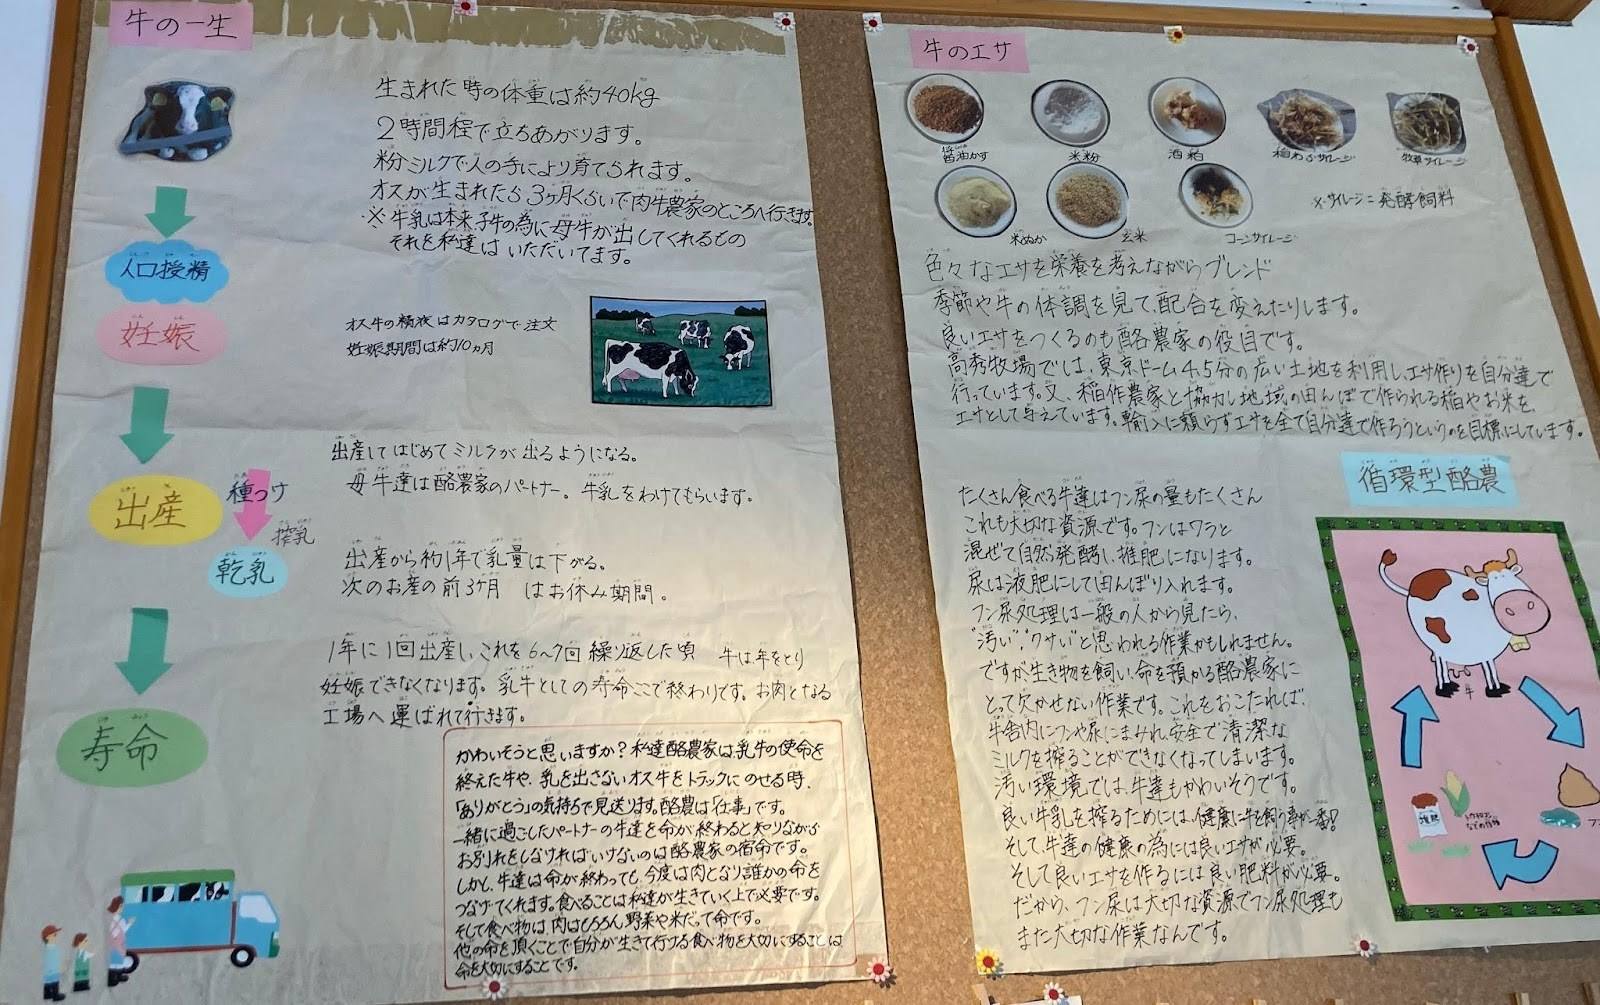 牛の一生
生まれた時の体重は約40kg
2時間程で立ちあがります。
粉ミルクで人の手により育てられます。
オスが生まれたら3ヶ月くらいで肉牛農家のところへ行きます。
※牛乳は本来子牛の為に母牛が出してくれるもの
それを私達はいただいてます。
人口授精
妊娠
オス牛の精液はカタログで注文
妊娠期間は約10ヵ月
出産してはじめてミルクが出るようになる。
母牛達は酪農家のパートナー。牛乳をわけてもらいます。
出産
種つけ
搾乳
乾乳
出産から約1年で乳量は下がる。
次のお産の前3ヶ月 はお休み期間。
1年に1回出産し、これを6〜7回繰り返した頃 牛は年をとり
妊娠できなくなります。乳牛としての寿命ここで終わりです。お肉となる
工場へ運ばれて行きます。
寿命
かわいそうと思いますか?私達酪農家は、乳牛の使命を
終えた牛や、乳を出さないオス牛をトラックにのせる時、
「ありがとう」の気持ちで見送ります。酪農は「仕事」です。
一緒に過ごしたパートナーの牛達を命が終わると知りながら
お別れをしなければいけないのは酪農家の宿命です。
しかし、牛達は命が終わっても、今度は肉となり誰かの命を
つなげてくれます。食べることは私達が生きていく上で必要です。
そして食べ物は、肉はもちろん、野菜や米だって命です。
他の命を頂くことで自分が生きて行ける食べ物を大切にすることは
命を大切にすることです。
牛のエサ
醤油かす
米粉
酒粕
稲わらサイレージ
牧草サイレージ
米ぬか
玄米
コーンサイレージ
※サイレージ=発酵飼料
色々なエサを栄養を考えながらブレンド
季節や牛の体調を見て、配合を変えたりします。
良いエサをつくるのも酪農家の役目です。
高秀牧場では、東京ドーム4.5分の広い土地を利用し、エサ作りを自分達で
行っています。又、稲作農家と協力し地域の田んぼで作られる稲やお米を、
エサとして与えています。輸入に頼らずエサを全て自分達で作ろうというのを目標にしています。
循環型酪農
たくさん食べる牛達はフン尿の量もたくさん
これも大切な資源です。フンはワラと
混ぜて自然発酵し、堆肥になります。
尿は液肥にして田んぼり入れます。
フン尿処理は一般の人から見たら、
"汚い"、"クサい"と思われる作業かもしれません。
ですが生き物を飼い、命を預かる酪農家に
とって欠かせない作業です。これをおこたれば、
牛舎内にフンや尿にまみれ、安全で清潔な
ミルクを搾ることができなくなってしまいます。
汚い環境では、牛達もかわいそうです。
良い牛乳を搾るためには、健康に牛を飼う事が一番!
そして牛達の健康の為には良いエサが必要。
そして良いエサを作るには良い肥料が必要。
だから、フン尿は大切な資源でフン尿処理も
また大切な作業なんです。
牛
堆肥
などの作物
フン